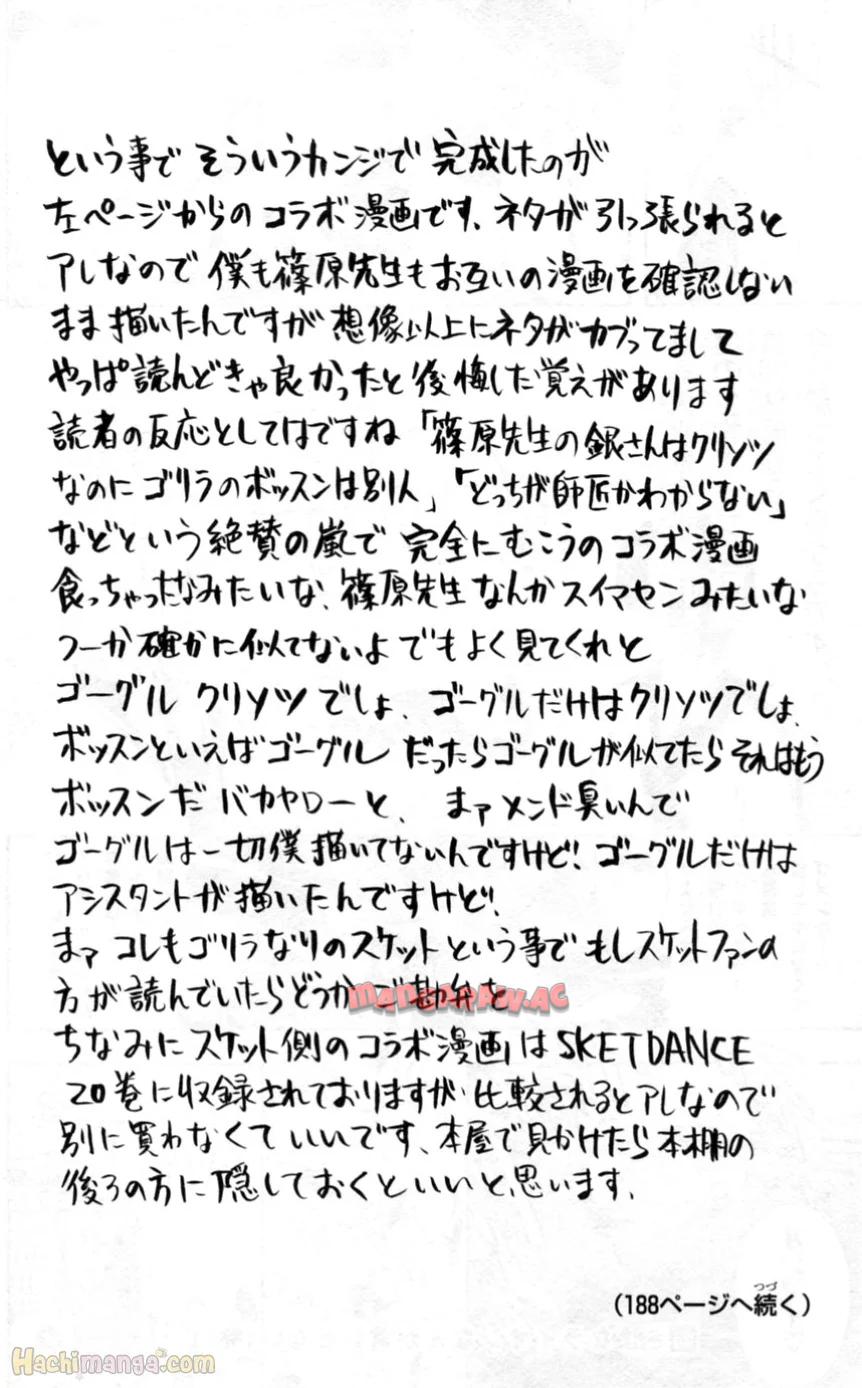 という事で そういうカンジで 完成したのが
左ページからの コラボ漫画です、ネタが引っ張られると
アレなので 僕も篠原先生もお互いの漫画を確認しない
まま描いたんですが 想像以上にネタがカブってまして
やっぱ読んどきゃ良かったと後悔した覚えがあります
読者の反応としてはですね「篠原先生の銀さんはクリソツ
なのにゴリラのボッスンは別人」「どっちが師匠かわからない」
などという絶賛の嵐で 完全にむこうのコラボ漫画
食っちゃったなみたいな、篠原先生なんかスイマセンみたいな
つーか確かに似てないよ でもよく見てくれと
ゴーグル クリソツでしょ、ゴーグルだけはクリソツでしょ、
ボッスンといえばゴーグル だったらゴーグルが似てたらそれはもう
ボッスンだ バカヤローと、 まァメンド臭いんで
ゴーグルは一切僕描いてないんですけど! ゴーグルだけは
アシスタントが描いたんですけど!
まァ コレもゴリラなりのスケットという事で もしスケットファンの
方が読んでいたらどうかご勘弁を
ちなみにスケット側のコラボ漫画はSKETDANCE
20巻に収録されておりますが 比較されるとアレなので
別に買わなくていいです、本屋で見かけたら本棚の
後ろの方に隠しておくといいと思います、
(188ページへ続く)
つづ
MANGARAW.AC
Hachimanga.com